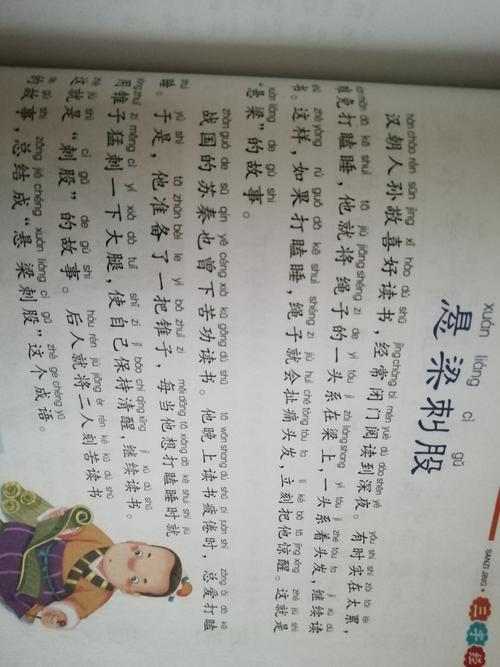 SANZI JING · 三字经
xuán liáng cì gǔ
悬梁刺股
hàn cháo rén sūn jìng xǐ hào dú shū jīng cháng bì mén yuè dú dào shēn yè yǒu shí shí zài tài lèi
汉朝人孙敬喜好读书，经常闭门阅读到深夜。有时实在太累，
nán miǎn dǎ kē shuì tā jiù jiāng shéng zi de yì tóu jì zài liáng shang yì tóu jì zhe tóu fa jì xù dú
难免打瞌睡，他就将绳子的一头系在梁上，一头系着头发，继续读
shū zhè yàng rú guǒ dǎ kē shuì shéng zi jiù huì chě tòng tóu fa lì kè bǎ tā jīng xǐng zhè jiù shì
书。这样，如果打瞌睡，绳子就会扯痛头发，立刻把他惊醒。这就是
xuán liáng de gù shi
“悬梁”的故事。
zhàn guó de sū qín yě céng xià kǔ gōng dú shū tā wǎn shang dú shū pí juàn shí zǒng ài dǎ kē
战国的苏秦也曾下苦功读书。他晚上读书疲倦时，总爱打瞌
shuì yú shì tā zhǔn bèi le yì bǎ zhuī zi měi dāng tā xiǎng dǎ kē shuì shí jiù
睡。于是，他准备了一把锥子，每当他想打瞌睡时就
yòng zhuī zi měng cì yí xià dà tuǐ shǐ zì jǐ bǎo chí qīng xǐng jì xù dú shū
用锥子猛刺一下大腿，使自己保持清醒，继续读书。
zhè jiù shì cì gǔ de gù shi hòu rén jiù jiāng èr rén kè kǔ dú shū
这就是“刺股”的故事。后人就将二人刻苦读书
de gù shi zǒng jié chéng xuán liáng cì gǔ zhè ge chéng yǔ
的故事，总结成“悬梁刺股”这个成语。